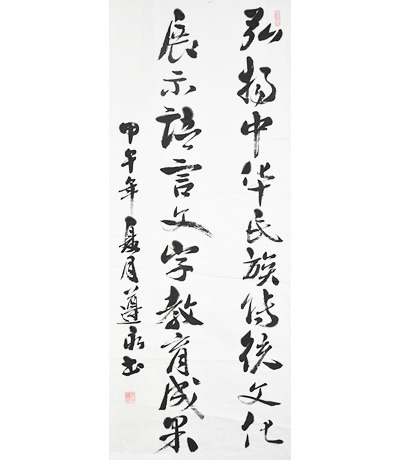 弘扬中华民族传统文化
展示语言文字教育成果
甲午年夏月遵永书